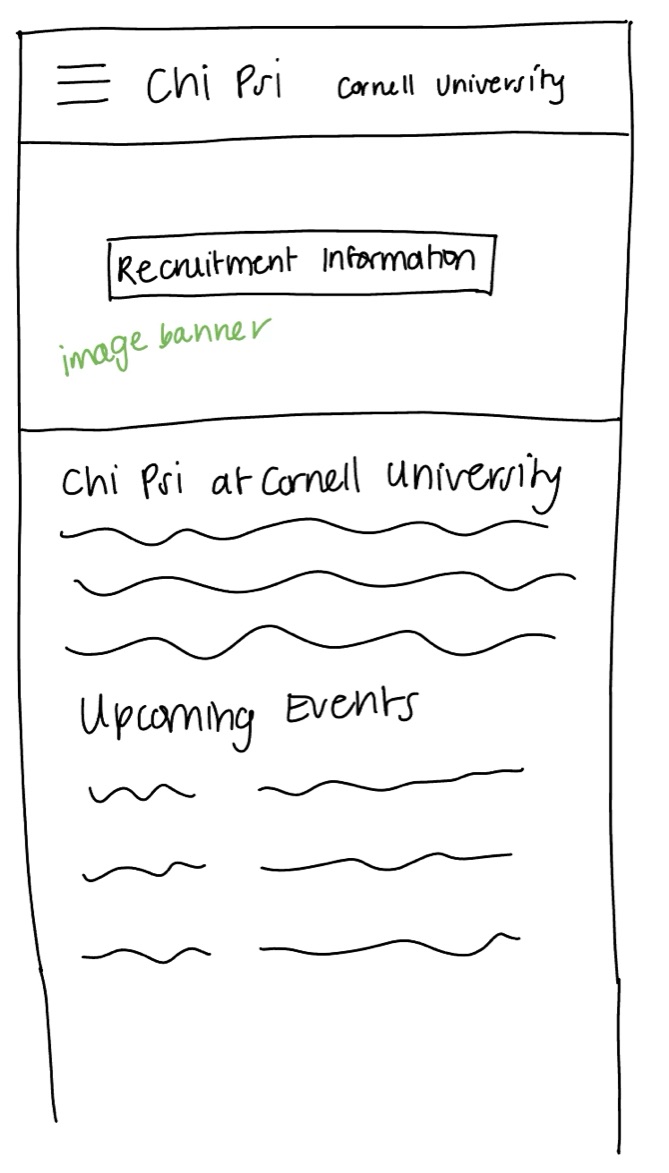 Chi Psi Cornell University
Recruitment Information
image banner
Chi Psi at Cornell University
Upcoming Events